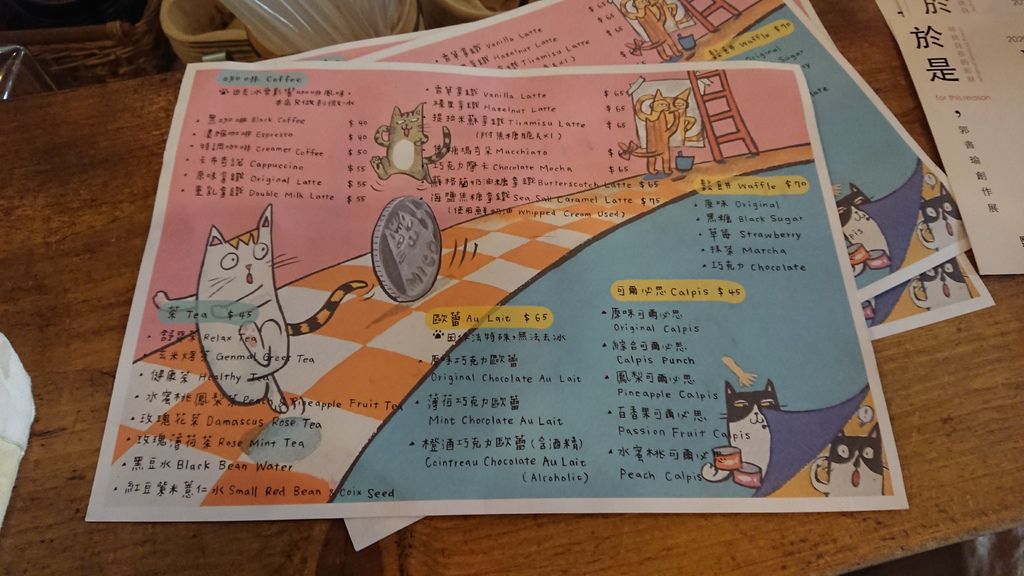 咖啡 Coffee
• 黑咖啡 Black Coffee $40
• 濃縮咖啡 Espresso $40
• 特調咖啡 Creamer Coffee $50
• 卡布奇諾 Cappuccino $55
• 原味拿鐵 Original Latte $55
• 重乳拿鐵 Double Milk Latte $55
• 香草拿鐵 Vanilla Latte $65
榛果拿鐵 Hazelnut Latte $65
提拉米蘇拿鐵 Tiramisu Latte $65
焦糖瑪奇朵 Macchiato
巧克力摩卡 Chocolate Mocha $65
奶油糖拿鐵 Butterscotch Latte $65
海鹽焦糖拿鐵 Sea Salt Caramel Latte $75
(使用鮮奶油 Whipped Cream Used)
鬆餅 Waffle $70
• 原味 Original
• 黑糖 Black Sugar
• 草莓 Strawberry
• 抹茶 Marcha
• 巧克力 Chocolate
茶 Tea $45
Relax Tea
玄米煎茶 Genmai Green Tea
健康茶 Healthy Tea
水蜜桃鳳梨茶 Peach & Pineapple Fruit Tea
玫瑰花茶 Damascus Rose Tea
玫瑰薄荷茶 Rose Mint Tea
黑豆水 Black Bean Water
紅豆紫米薏仁水 Small Red Bean & Coix Seed
歐蕾 Au Lait $65
因作法特殊,無法去冰
原味巧克力歐蕾
Original Chocolate Au Lait
薄荷巧克力歐蕾
Mint Chocolate Au Lait
橙酒巧克力歐蕾(含酒精)
Cointreau Chocolate Au Lait
(Alcoholic)
可爾必思 Calpis $45
原味可爾必思
Original Calpis
綜合可爾必思
Calpis Punch
鳳梨可爾必思
Pineapple Calpis
百香果可爾必思
Passion Fruit Calpis
水蜜桃可爾必思
Peach Calpis
香草拿鐵 Vanilla Latte
Hazelnut Latte
Tiramisu Latte
鬆餅 Waffle $70
於於是,
for this reason
郭書瑜創作展